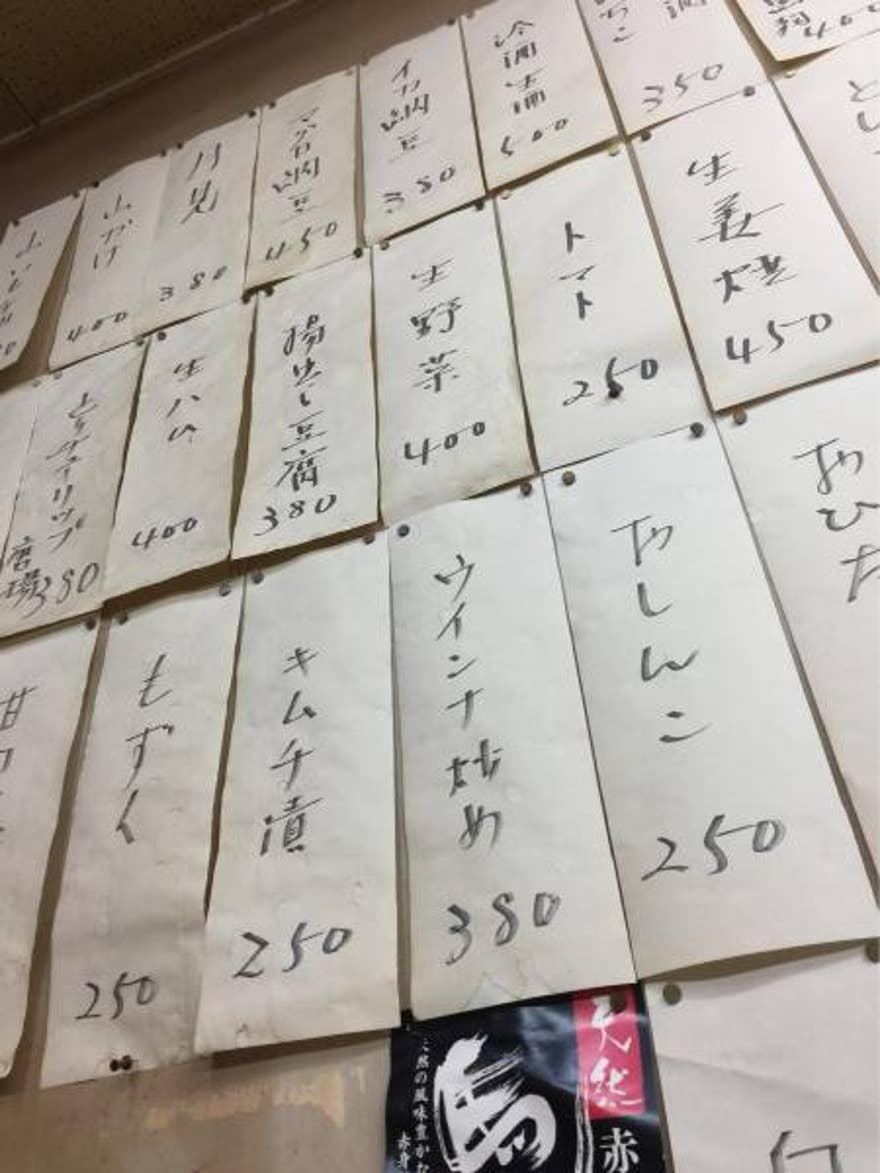 350
冷酒生酒
500
イカ納豆
380
マグロ納豆
450
月見
380
山かけ
400
生姜焼
450
トマト
250
生野菜
400
揚出し豆腐
380
生ハム
400
唐揚
380
おひた
おしんこ
250
ウインナ炒め
380
キムチ漬
250
もずく
250
天然
赤
天然の風味豊かな
赤身